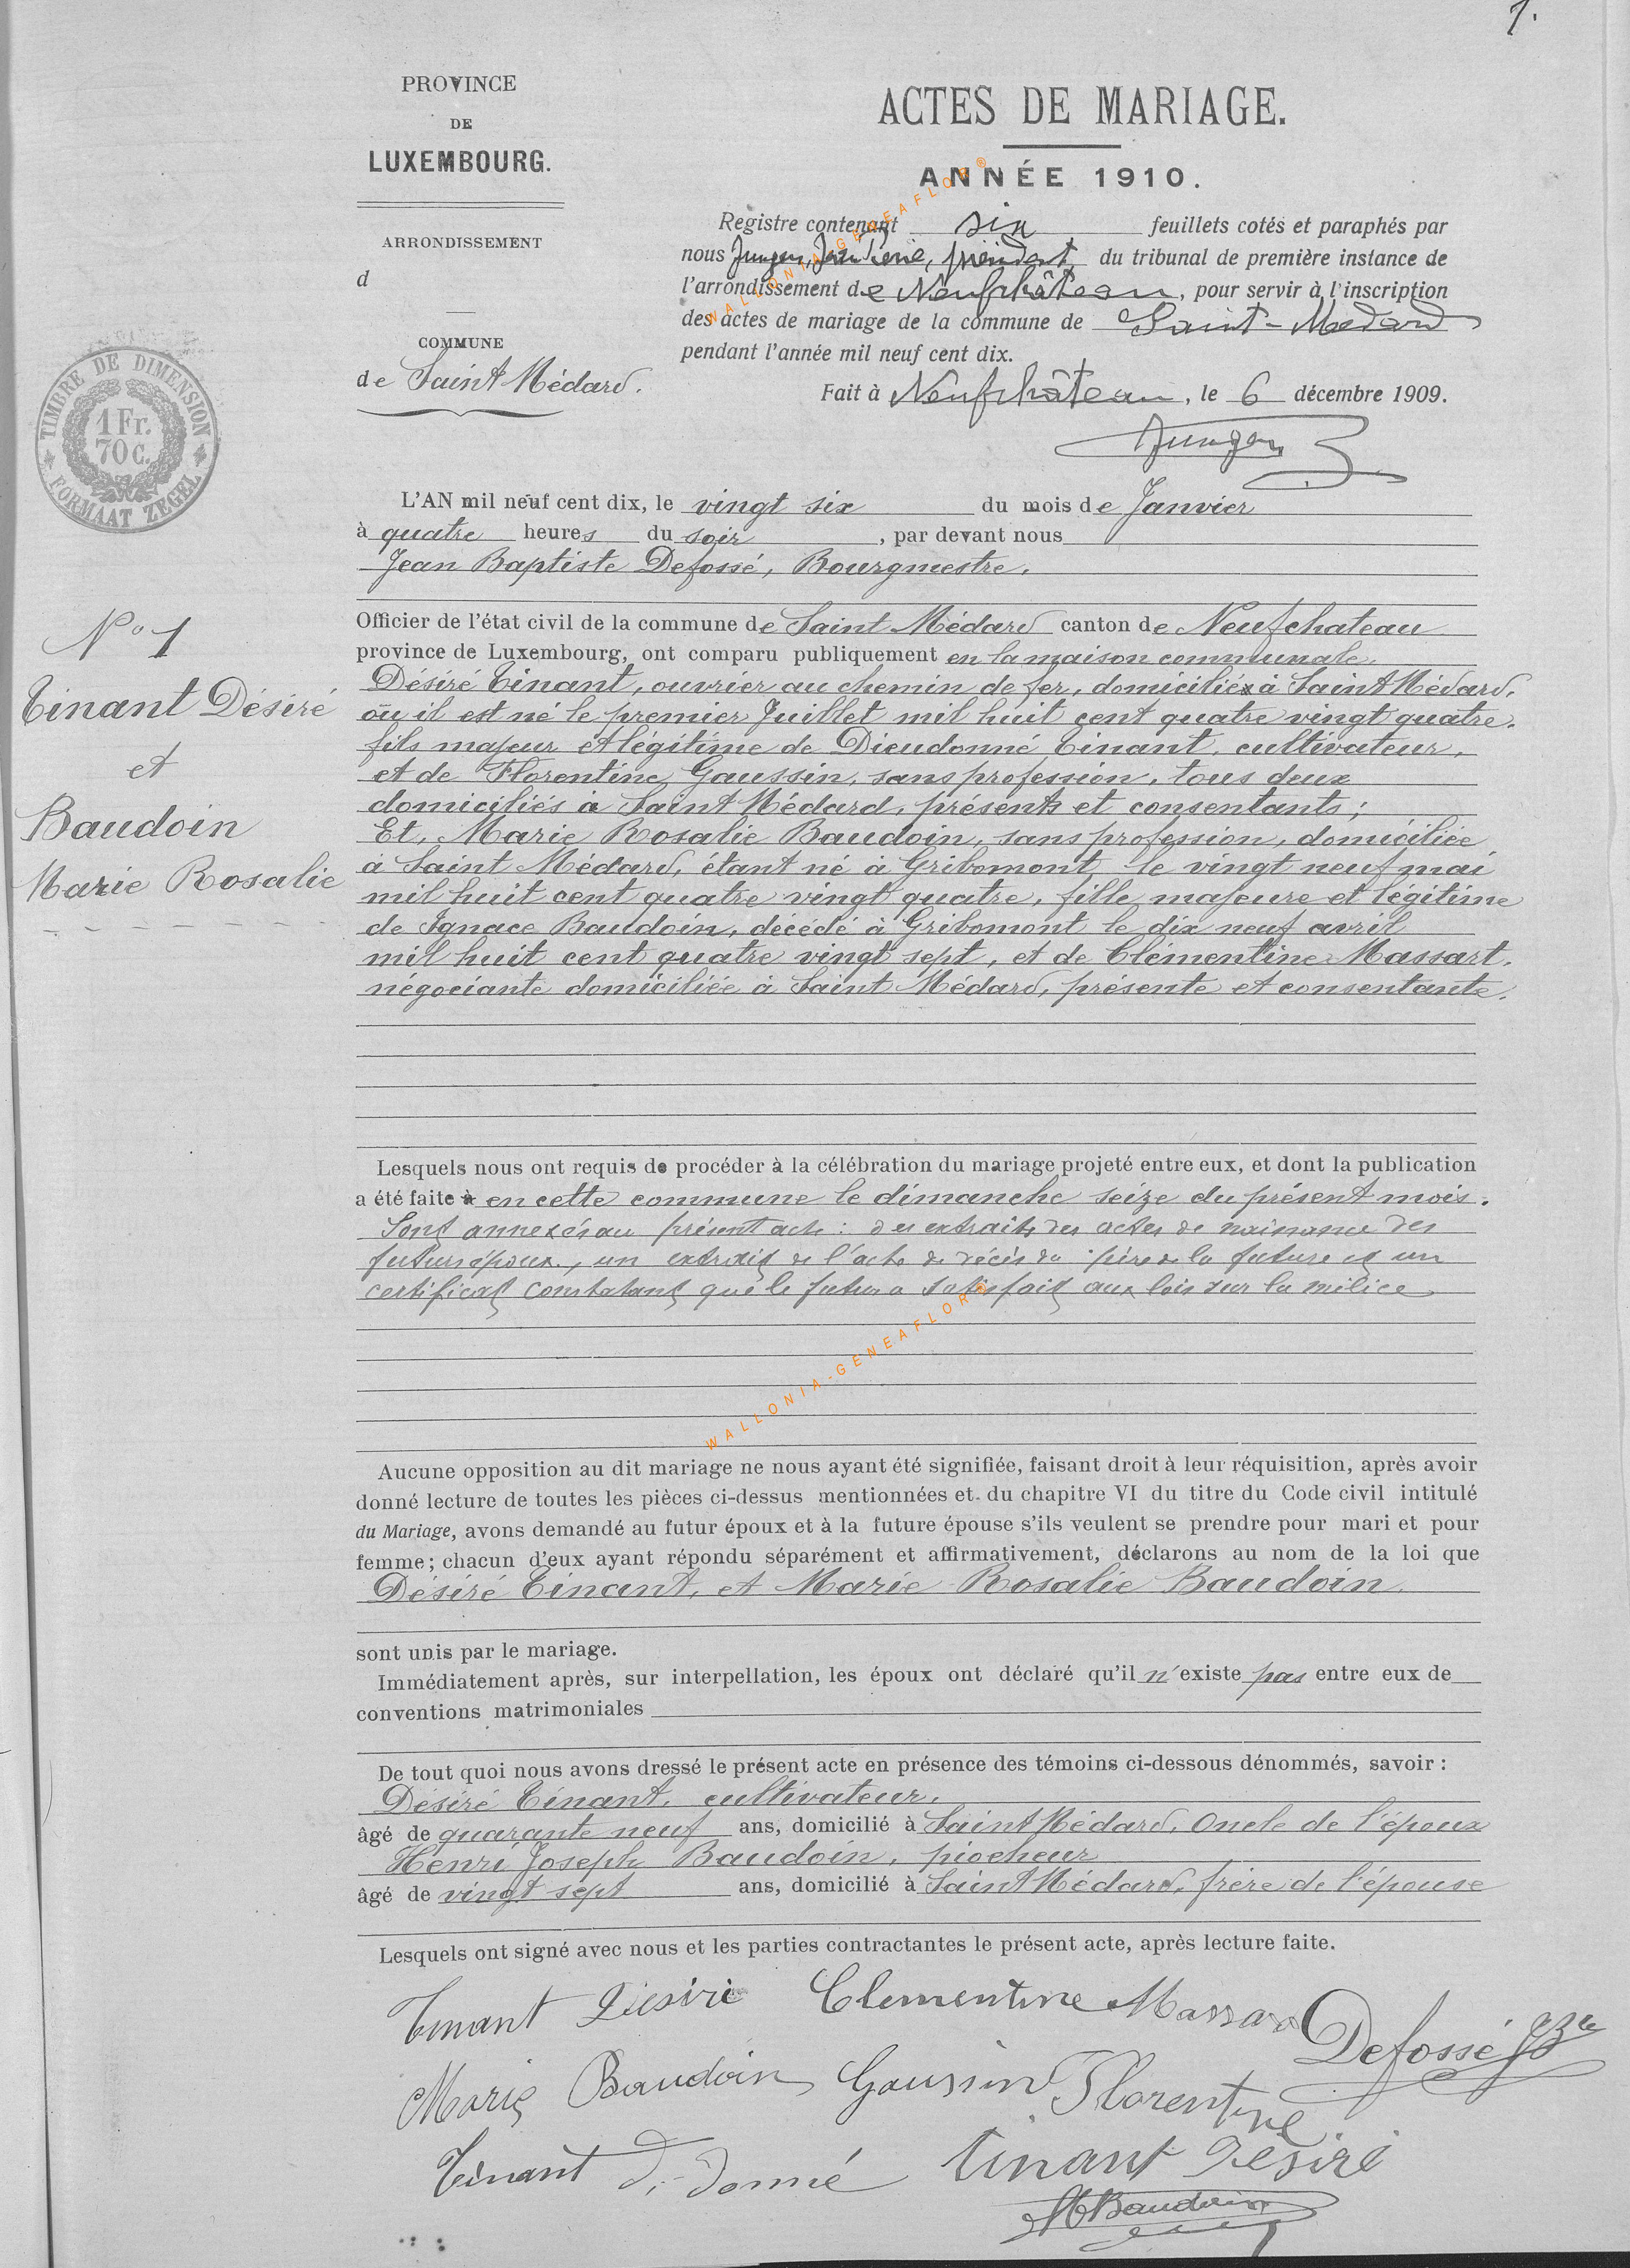 1.
PROVINCE
DE
LUXEMBOURG.
ARRONDISSEMENT
d
COMMUNE
de Saint Médard.
TIMBRE DE DIMENSION
1 Fr.
70 C.
FORMAAT ZEGEL
ACTES DE MARIAGE.
ANNÉE 1910.
Registre contenant six feuillets cotés et paraphés par
nous président du tribunal de première instance de
l'arrondissement de Neufchâteau, pour servir à l'inscription
des actes de mariage de la commune de Saint-Médard
pendant l'année mil neuf cent dix.
Fait à Neufchâteau, le 6 décembre 1909.
L'AN mil neuf cent dix, le vingt six du mois de Janvier
à quatre heures du soir, par devant nous
Jean Baptiste Defossé, Bourgmestre.
Officier de l'état civil de la commune de Saint Médard canton de Neufchateau
province de Luxembourg, ont comparu publiquement en la maison communale.
N° 1
Tinant Désiré
et
Baudoin
Marie Rosalie
Désiré Tinant, ouvrier au chemin de fer, domicilié à Saint Médard.
où il est né le premier Juillet mil huit cent quatre vingt quatre.
fils majeur et légitime de Dieudonné Tinant, cultivateur,
et de Florentine Gaussin, sans profession, tous deux
domiciliés à Saint Médard, présents et consentants;
Et, Marie Rosalie Baudoin, sans profession, domiciliée
à Saint Médard, étant né à Gribomont, le vingt neuf mai
mil huit cent quatre vingt quatre, fille majeure et légitime
de Ignace Baudoin, décédé à Gribomont le dix neuf avril
mil huit cent quatre vingt sept, et de Clémentine Massart.
négociante domiciliée à Saint Médard, présente et consentante.
Lesquels nous ont requis de procéder à la célébration du mariage projeté entre eux, et dont la publication
a été faite à en cette commune le dimanche seize du présent mois.
Sont annexés au présent acte : des extraits des actes de naissance des
futurs époux, un extrait de l'acte de décès du père de la future et un
certificat constatant que le futur a satisfait aux lois sur la milice
Aucune opposition au dit mariage ne nous ayant été signifiée, faisant droit à leur réquisition, après avoir
donné lecture de toutes les pièces ci-dessus mentionnées et du chapitre VI du titre du Code civil intitulé
du Mariage, avons demandé au futur époux et à la future épouse s'ils veulent se prendre pour mari et pour
femme; chacun d'eux ayant répondu séparément et affirmativement, déclarons au nom de la loi que
Désiré Tinant, et Marie Rosalie Baudoin
sont unis par le mariage.
Immédiatement après, sur interpellation, les époux ont déclaré qu'il n'existe pas entre eux de
conventions matrimoniales
De tout quoi nous avons dressé le présent acte en présence des témoins ci-dessous dénommés, savoir :
Désiré Tinant, cultivateur.
âgé de quarante neuf ans, domicilié à Saint Médard, Oncle de l'époux
Henri Joseph Baudoin, piocheur
âgé de vingt sept ans, domicilié à Saint Médard, frère de l'épouse
Lesquels ont signé avec nous et les parties contractantes le présent acte, après lecture faite.
Tinant Désiré Clementine Massart
Defossé JBte
Marie Baudoin Gaussin Florentine
Tinant Di-donné Tinant Désiré
H Baudoin
WALLONIA-GENEAFLOR®
WALLONIA-GENEAFLOR®